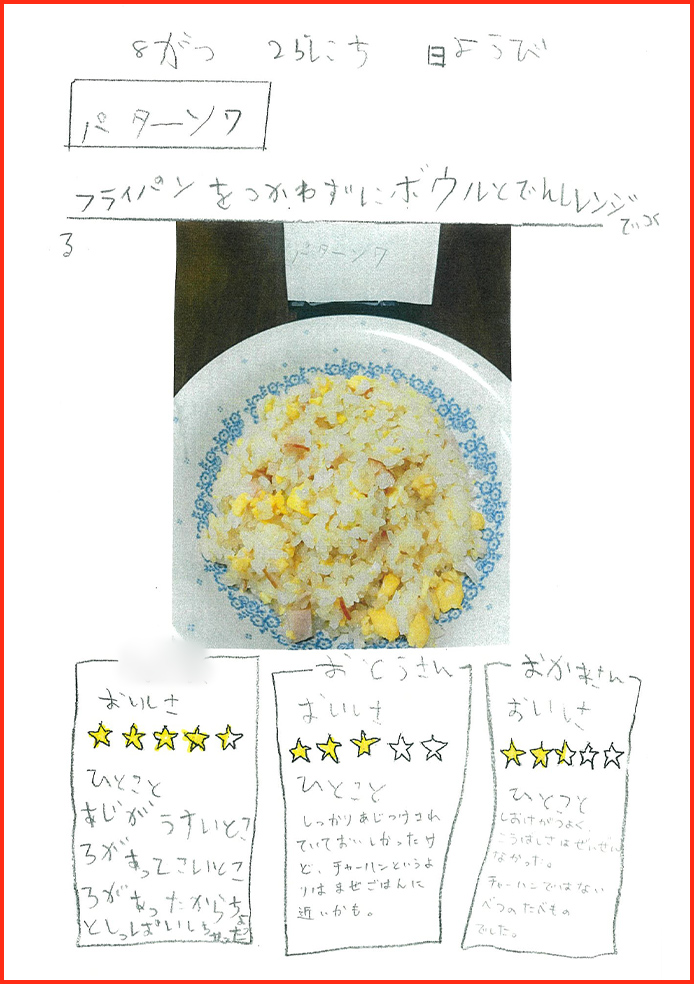 8がつ 25にち 日ようび
パターン7
フライパンをつかわずにボウルとでんしレンジでつく
る
パターン7
おいしさ
ひとこと
あじが うすいとこ
ろが あってこいとこ
ろが あったからちょっ
としっぱいしちゃった
おとうさん
おいしさ
ひとこと
しっかりあじつけされ
ていておいしかったけ
ど、チャーハンというよ
りは まぜごはんに
近いかも。
おかあさん
おいしさ
ひとこと
しおけがつよく、
こうばしさはぜんぜん
なかった。
チャーハンではない
べつのたべもの
でした。